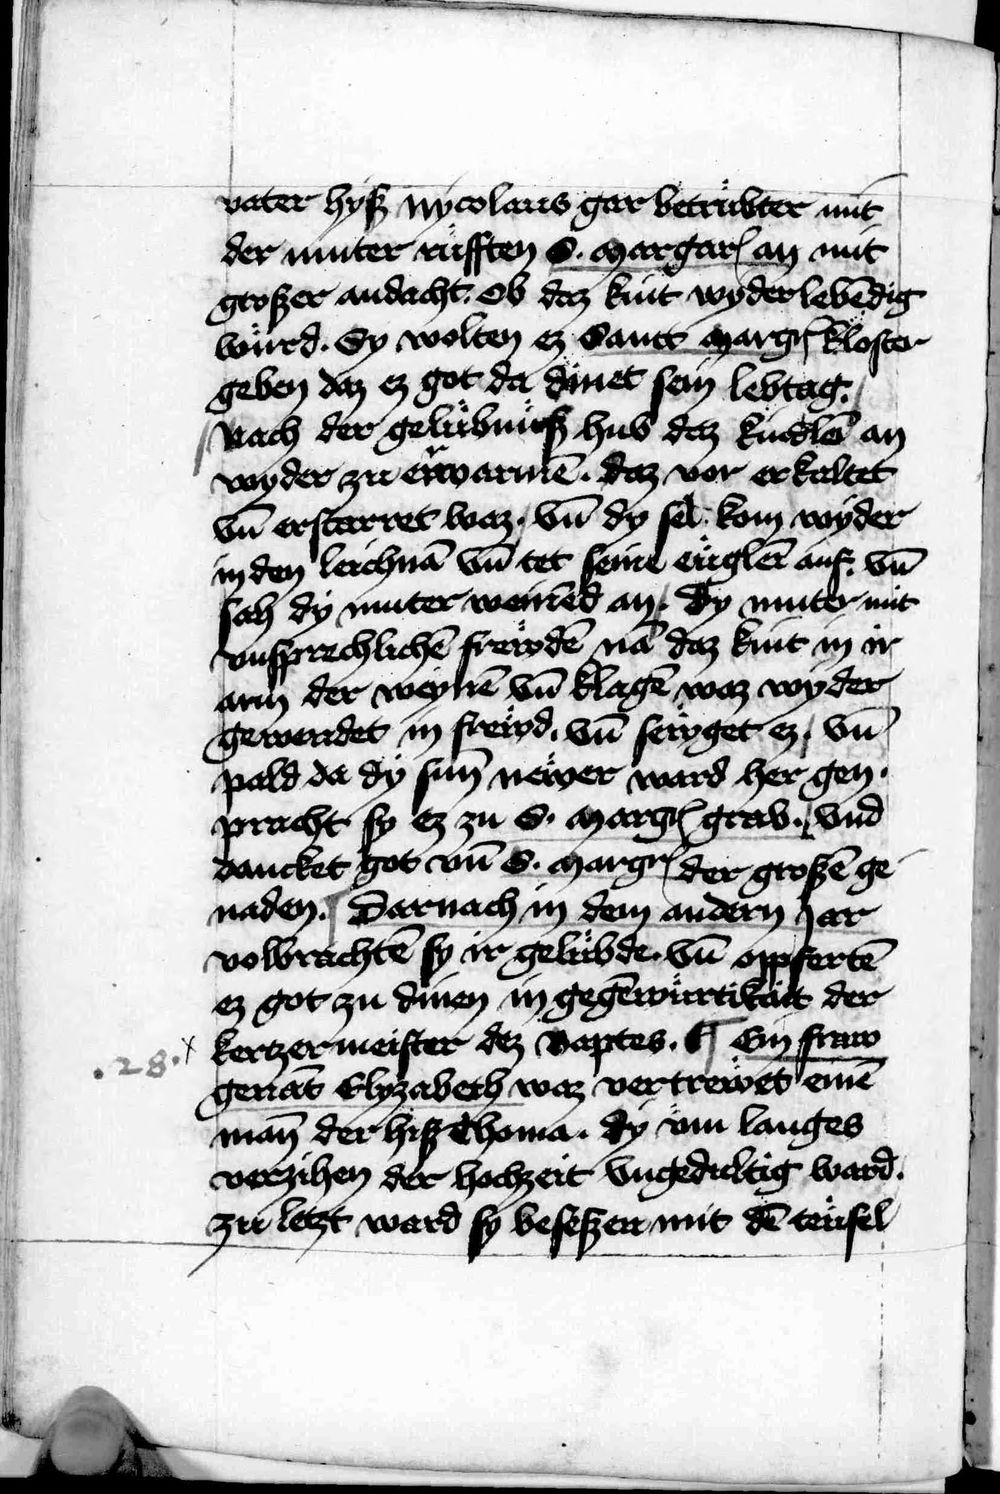 vater hyſz nycolaus gar betrübter mit
der muter rüfften S. margarꝭ an mit
groſzer andacht. Ob daz kint wyder lebēdig
würd. Sy wolten ez Sant margrꝭ kloſter
geben daz ez got da dinet ſein lebtag.
Nach der gelübnüſz hub daz kindlē an
wyder zu erwarmē. daz vor erkaltet
vn̄ erſtarret waz. vn̄ dy ſel kom wyder
in den leichnā vn̄ tet ſeine eüglē auf. vn̄
ſah dy muter weinēd an. Dy muter mit
vnſprechlichē frewdē nā daz kint in ir
arm der weynē vn̄ klagē waz wyder
gewendet in frewd. vn̄ ſewget ez. vn̄
pald da dy ſun̄ newer ward her gen.
pracht ſy ez zu S. margrꝭ grab. vnd
dancket got vn̄ S. margrꝭ der groſzē ge
naden. Darnach in dem andern jar
volbrachtē ſy ir gelübde. vn̄ oppfertē
ez got zu dinen in gegēwürtikait der
kertzermeiſter dez Baptes. Ein fraw
.28.x
genāt Elyzabeth waz vertrewet einē
man̄ der hiſz Thoma. dy vm langes
verzihen der hochzeit vngedultig ward.
zu letzt ward ſy beſeſzen mit dē teüfel